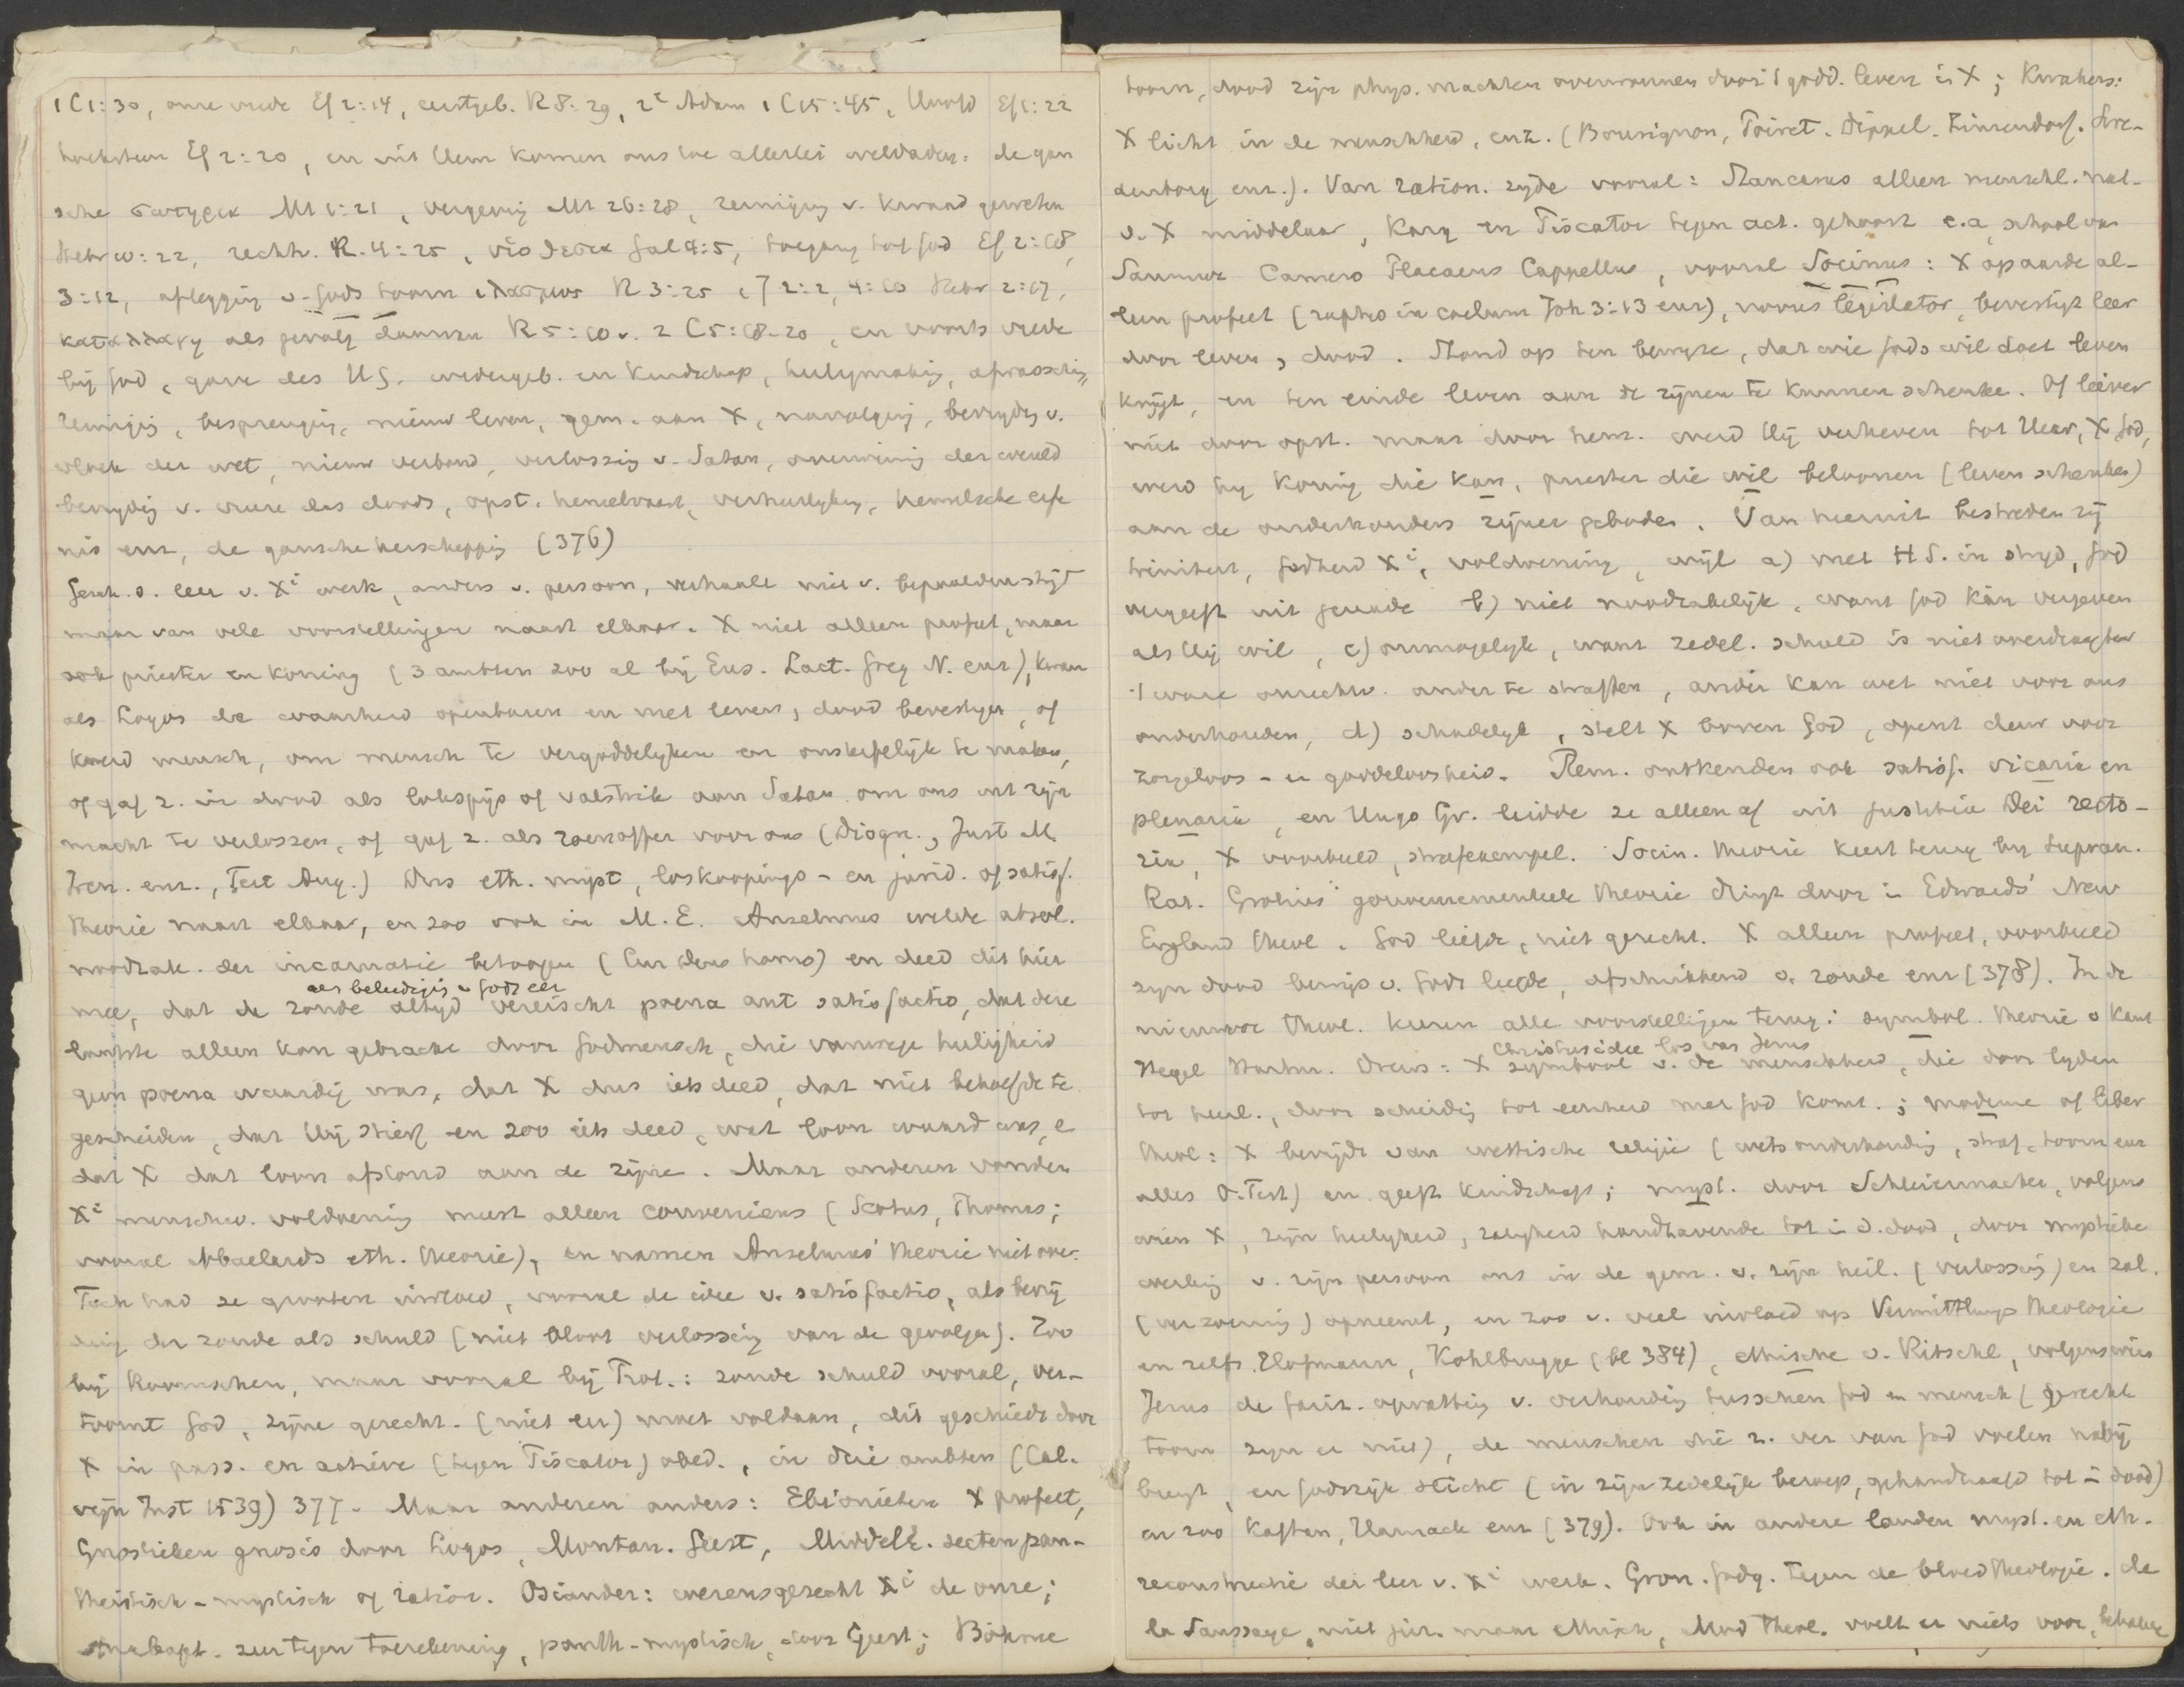 1 C 1:30, onze vrede Ef 2:14, eerstgeb. R 8:29, 2e Adam 1 C 15:45, Hoofd Ef 1:22
hoeksteen Ef 2:20, en uit Hem komen ons toe allerlei weldaden: de gan
sche σωτηρια Mt 1:21, vergeving Mt 26:28, reiniging v. kwaad geweten
Hebr 10:22, rechtv. R. 4:25, υἱοθεσια Gal 4:5, toegang tot God Ef 2:18,
3:12, aflegging v. Gods toorn ἱλασμος R 3:25 1 J 2:2, 4:10 Hebr 2:17,
καταλλαγη als gevolg daarvan R 5:10 v. 2 C 5:18-20, en voorts vrede
bij God, gave des HG. wedergeb. en kindschap, heiligmaking, afwassching,
reiniging, besprenging, nieuw leven, gem. aan X, navolging, bevryding v.
vloek der wet, nieuw verbond, verlossing v. Satan, overwinning der wereld
bevryding v. vreeze des doods, opst. hemelvaart, verheerlyking, hemelsche erfe
nis enz, de gansche herschepping (376)
Gesch. d. leer v. Xi werk, anders v. persoon, verhaalt niet v. bepaalden stryd
maar van vele voorstellingen naast elkaar. X niet alleen profeet, maar
ook priester en koning (3 ambten zoo al bij Eus. Lact. Greg N. enz), kwam
als Logos de waarheid openbaren en met leven, dood bevestigen, of
werd mensch, om mensch te vergoddelyken en onsterfelijk te maken,
of gaf z. in dood als lokspijs of valstrik aan Satan om ons uit zijn
macht te verlossen, of gaf z. als zoenoffer voor ons (Diogn., Just M.
Iren. enz., Tert Aug.) Dus eth. myst, loskoopings- en jurid. of satisf.
theorie naast elkaar, en zoo ook in M. E. Anselmus wilde absol.
noodzak. der incarnatie betoogen (Cur Deus homo) en deed dit hier
als beleediging v Gods eer
mee, dat de zonde altyd vereischt poena aut satisfactio, dat deze
laatste alleen kon gebracht door Godmensch, die vanwege heiligheid
geen poena waardig was, dat X dus iets deed, dat niet behoefde te
geschieden, dat Hij stierf en zoo iets deed, wat loon waard was, e
dat X dat loon afstond aan de zijne. Maar anderen vonden
Xi menschw. voldoening meest alleen conveniens (Scotus, Thomas;
vooral Abaelards eth. theorie), en namen Anselmus' theorie niet over.
Toch had ze grooten invloed, vooral de idee v. satisfactio, als bevrij
ding der zonde als schuld (niet bloot verlossing van de gevolgen). Zoo
bij Roomschen, maar vooral bij Prot.: zonde schuld vooral, ver-
toornt God, zijne gerecht. (niet eer) moet voldaan, dit geschiedt door
X in pass. en actieve (tegen Piscator) obed., in drie ambten (Cal.
vijn Inst 1539) 377. Maar anderen anders: Ebionieten X profeet,
Gnostieken gnosis door Logos, Montan. Geest, MiddelE. secten pan-
theistisch-mystisch of ration. Osiander: wezensgerecht Xi de onze;
Anabapt. zeer tegen toerekening, panth-mystisch, door Geest; Böhme
toorn, dood zijn phys. machten overwonnen door 't godd. leven in X; Kwakers:
X licht in de menschheid, enz. (Bourignon, Poiret. Dippel. Zinzendorf. Swe-
denborg enz.). Van ration. zyde vooral: Stancarus alleen menschl. nat.
v. X middelaar, Karg en Piscator tegen act. gehoorz e.a, school van
Saumur Camero Placaeus Cappellus, vooral Socinus: X op aarde al-
leen profeet (raptus in coelum Joh 3:13 enz), novus legislator, bevestigt leer
door leven, dood. Stond op ten bewyze, dat wie Gods wil doet leven
krijgt, en ten einde leven aan de zijnen te kunnen schenken. Of liever
niet door opst. maar door hem. werd Hij verheven tot Heer, X God,
werd hij koning die kan, priester die wil beloonen (leven schenken)
aan de onderhouders zijner geboden. Van hieruit bestreden zij
triniteit, Godheid Xi, voldoening, wijl a) met H S. in stryd, God
vergeeft uit genade b) niet noodzakelijk, want God kán vergeven
als Hij wil, c) onmogelyk, want zedel. schuld is niet overdraagbaar
't ware onrechtv. ander te straffen, ander kan wet niet voor ons
onderhouden, d) schadelyk, stelt X boven God, opent deur voor
zorgeloos- en goddeloosheid. Rem. ontkenden ook satisf. vicaria en
plenaria, en Hugo Gr. leidde ze alleen af uit justitia Dei recto-
ria, X voorbeeld, strafexempel. Socin. theorie keert terug by supran.
Rat. Grotius' gouvernementeele theorie dringt door in Edwards' New
England theol. God liefde, niet gerecht. X alleen profeet, voorbeeld
zyn dood bewijs v. Gods liefde, afschrikkend v. zonde enz (378). In de
nieuwere theol. keeren alle voorstellingen terug: symbol. theorie v Kant
Christusidee los van Jezus
Hegel Hartm. Drews: X symbool v. de menschheid, die door lyden
tot heerl., door scheiding tot eenheid met God komt.; moderne of liber
theol: X bevrijdt van wettische religie (wetsonderhouding, straf, toorn enz
alles O.Test) en geeft kindschap; myst. door Schleiermacher, volgens
wien X, zijn heiligheid, zaligheid handhavende tot in d. dood, door mystieke
werking v. zijn persoon ons in de gem. v. zijn heil. (verlossing) en zal.
(verzoening) opneemt, en zoo v. veel invloed op Vermittlungs theologie
en zelfs Hofmann, Kohlbrugge (bl 384), ethische v. Ritschl, volgens wien
Jezus de juist. opvatting v. verhouding tusschen God en mensch (gerecht
toorn zyn er niet), de menschen die z. ver van God voelen naby
brengt, en godsrijk sticht (in zijn zedelijk beroep, gehandhaafd tot in dood)
en zoo Kaftan, Harnack enz (379). Ook in andere landen myst. en eth.
reconstructie der leer v. Xi werk. Gron. godg. tegen de bloedtheologie. de
la Saussaye, niet jur. maar ethisch, Mod theol. voelt er niets voor, behalve